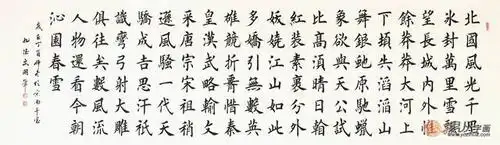 北國風光千里
冰封萬里雪飄
望長城內外惟
餘莽莽大河上
下頓失滔滔山
舞銀蛇原馳蠟
象欲與天公試
比高須晴日看
紅裝素裹分外
妖嬈江山如此
多嬌引無數英
雄競折腰惜秦
皇漢武略輸文
采唐宗宋祖稍
遜風騷一代天
驕成吉思汗祇
識彎弓射大雕
俱往矣數風流
人物還看今朝
沁園春雪
丁酉